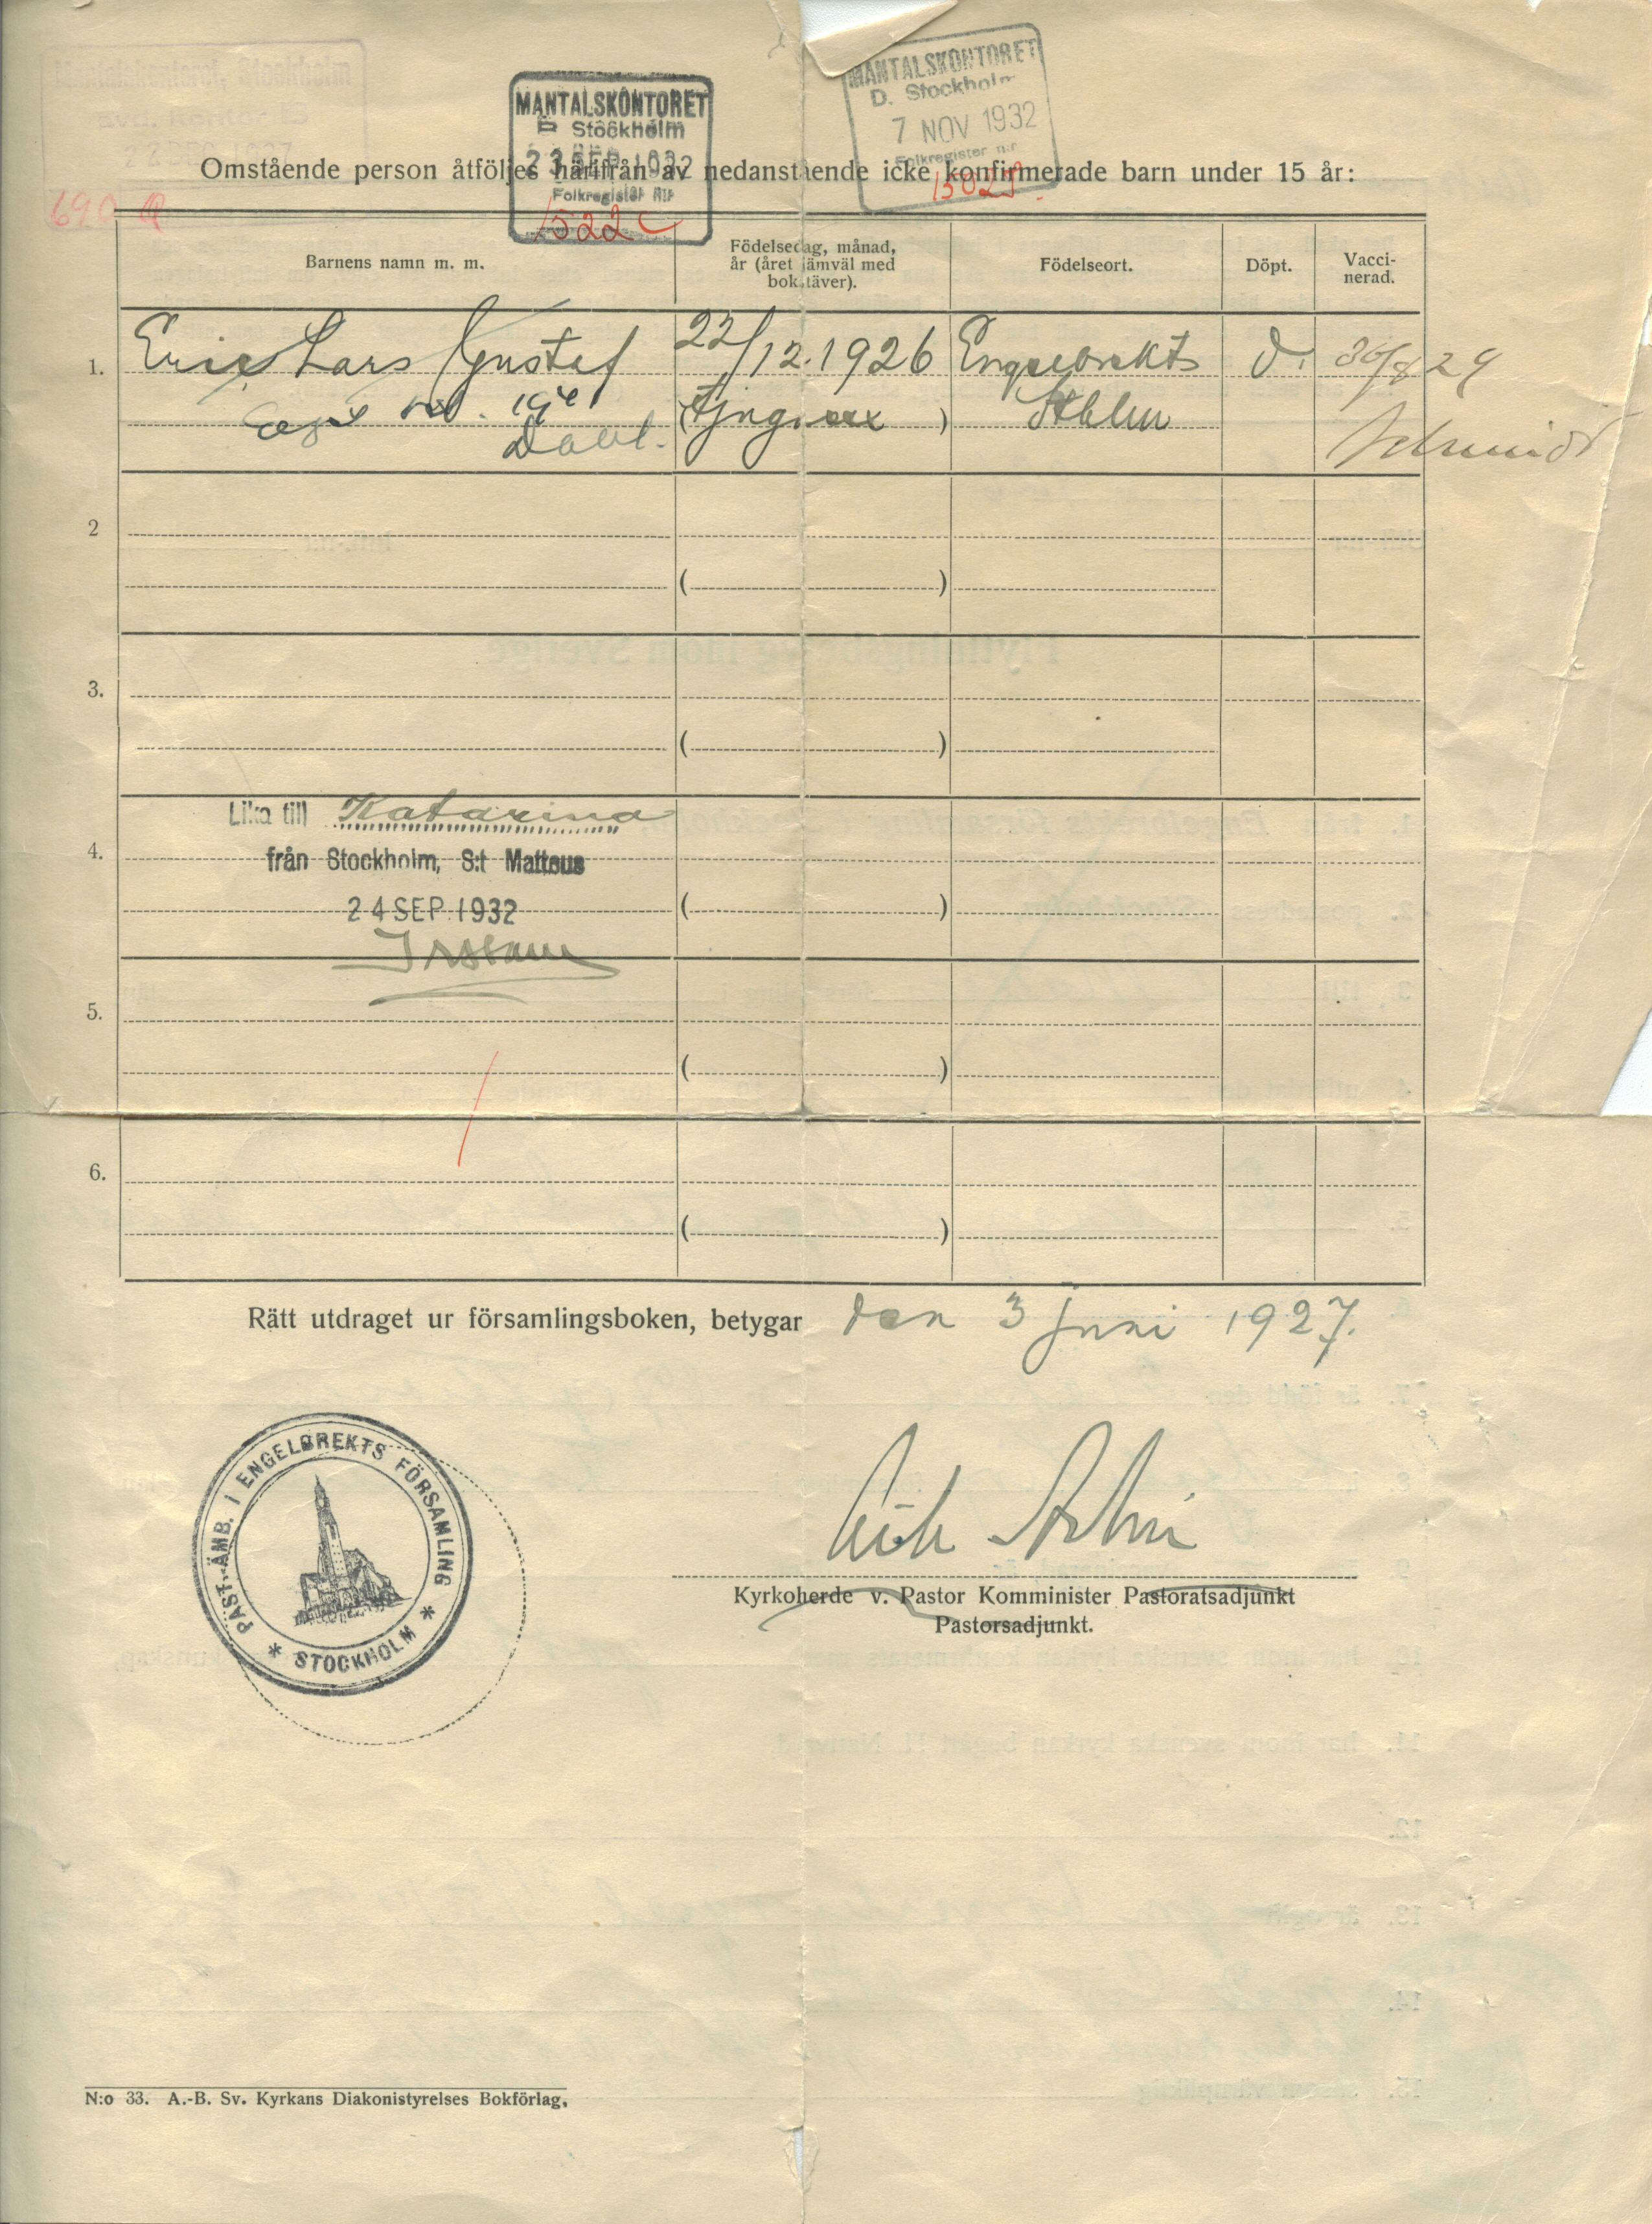 MANTALSKONTORET
Stockholm
23 SEP 1932
Folkregister n:r
1522 C
MANTALSKONTORET
D. Stockholm
7 NOV 1932
Folkregister n:r
690
Omstående person åtföljes härifrån av nedanstående icke konfirmerade barn under 15 år:
Barnens namn m. m.
Födelsedag, månad, år (året jämväl med bokstäver).
Födelseort.
Döpt.
Vacci-
nerad.
1. Eric Lars Gustaf 22/12.1926 Engelbrekts d. 30/8 29
(tjugosex) Sthlm
Dahl.
2
( )
3.
( )
Lika till Katarina
4. från Stockholm, S:t Matteus
24 SEP. 1932 ( )
5.
( )
6.
( )
Rätt utdraget ur församlingsboken, betygar den 3 juni 1927.
PAST.-ÄMB. I ENGELBREKTS FÖRSAMLING
* STOCKHOLM *
Kyrkoherde v. Pastor Komminister Pastoratsadjunkt
Pastorsadjunkt.
N:o 33. A.-B. Sv. Kyrkans Diakonistyrelses Bokförlag.